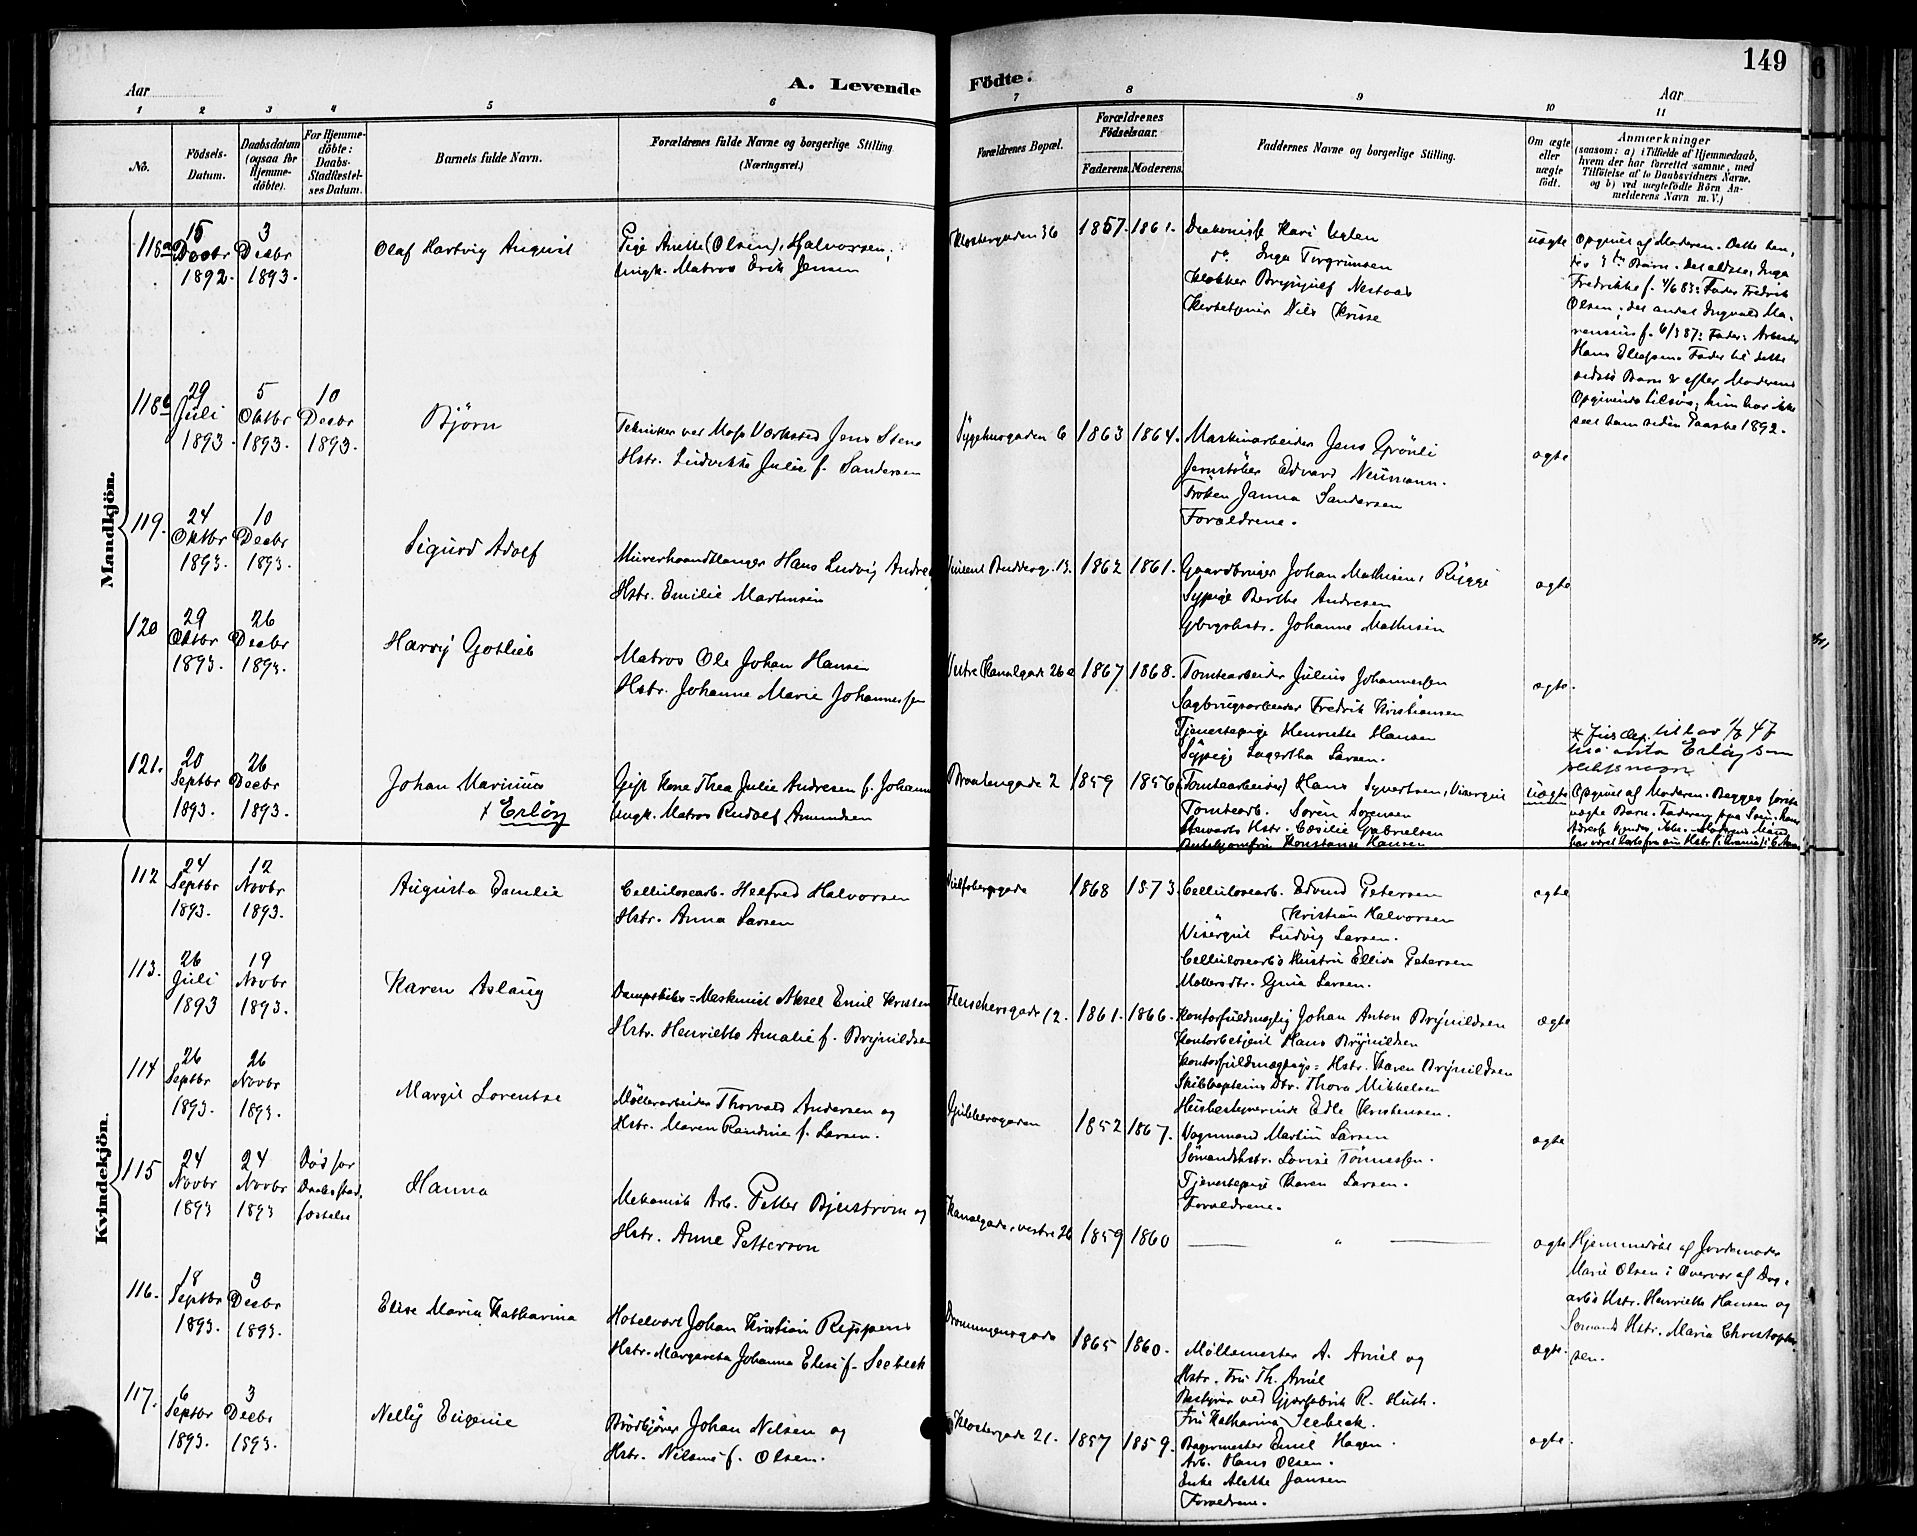 149
A. Levende Födte.
Aar
Aar
1 2 3 4 5 6 7 8 9 10 11
No.
Födsels-
Datum.
Daabsdatum
(ogsaa for
Hjemme-
döbte).
For Hjemme-
döbte:
Daabs-
Stadfæstel-
ses Datum.
Barnets fulde Navn.
Forældrenes fulde Navne og borgerlige Stilling
(Næringsvei.)
Forældrenes Bopæl.
Forældrenes
Födselsaar.
Faderens. Moderens.
Faddernes Navne og borgerlige Stilling.
Om ægte
eller
uægte
födt.
Anmærkninger
(saasom: a) i Tilfælde af Hjemmedaab,
hvem der har forrettet samme, med
Tilföielse af to Daabsvidners Navne.
og b) ved uægtefödte Börn An-
melderens Navn m. V.)
Mandkjön.
118a 15 Decbr 1892. 3 Decbr 1893.
Olaf Hartvig August
Pige Anette (Olsen), Halvorsen;
Ungk. Matros Erik Jensen
Klostergaden 36 1857. 1861.
Diakonisse Kari Uglen
do Inga Torgrimsen
Klokker Brynjulf Nestaas
Kirketjener Nils Krisse
uægte
Opgivet af Moderen. Dette hen-
des 3die Barn. Det ældste, Inga
Fredrikke f. 4/6 83: Fader Fredrik
Olsen; det andet Ingvald Ma-
rensius f. 6/3 87: Fader: Arbeider
Hans Ellefsen. Fader til dette
sidste Barn er efter Moderens
Opgivende tilsøs; hun har ikke
seet ham siden Paaske 1892.
118b 29 Juli 1893. 5 Oktbr 1893. 10 Decbr 1893.
Björn
Tekniker ver Moss Værksted Jens Stene
Hstr. Ludvikke Julie f. Sandersen
Sygehusgaden 6 1863 1864.
Maskinarbeider Jens Grönli
Jernstöber Edvard Neumann.
Fröken Janna Sandersen
Forældrene.
ægte
119. 24 Oktbr 1893. 10 Decbr 1893.
Sigurd Adolf
Murerhaandlanger Hans Ludvig Andre
Hstr. Emilie Martinsen
Vincent Buddesg. 13. 1862 1861.
Gaardbruger Johan Mathisen, Rygge
Sypige Berthe Andresen
Gbrgrhstr. Johanne Mathisen
ægte
120 29 Oktbr 1893. 26 Decbr 1893.
Harry Gotlieb
Matros Ole Johan Hansen
Hstr. Johanne Marie Johannessen
Vestre Kanalgade 26a 1867 1868.
Tomtearbeider Julius Johannessen
Sagbrugsarbeider Fredrik Kristiansen
Tjenestepige Henriette Hansen
Sypige Lagertha Larsen.
ægte.
121. 20 Septbr 1893. 26 Decbr 1893.
Johan Marinius
x Erlöy
Gift Kone Thea Julie Andresen f. Johann
Ungk. Matros Rudolf Amundsen
Braatengade 2 1859 1856
(Tomtearbeider) Hans Syvertsen, Visergut
Tomtearb. Sören Sörensen
Stuwarts Hstr. Cæsilie Gabrielsen
Konstanse Hansen
uægte
* Jusdep. till. av 47
til å anta Erløy som
slektsnavn
Opgivet af Moderen. Begges förste
uægte Barn. Faderen paa Söen, hans
Adresse kjendes ikke. Moderens Mand
har været borte fra sin Hstr i 6 Aar.
Kvindekjön.
112 24 Septbr 1893. 12 Novbr 1893.
Augusta Emilie
Cellulosearb. Helfred Halvorsen
Hstr. Anna Larsen
1868 1873.
Cellulosearb. Edvind Petersen
Kristian Halvorsen
Visergut Ludvig Larsen.
Cellulosearb's Hustru Ellida Petersen
Möllers dtr. Gina Larsen.
ægte
113. 26 Juli 1893 19 Novbr 1893.
Karen Aslaug
Dampskibs=Maskinist Aksel Emil Kristen
Hstr. Henriette Amalie f. Brynildsen
Fleischersgade 12. 1861. 1866.
Kontorfuldmægtig Johan Anton Brynildsen
Kontorbetjent Hans Brynildsen
Kontorfuldmægtigs= Hstr. Karen Brynildsen
Skibskapteins Dtr. Thora Mikkelsen
Husbestyrerinde Edle Kristensen.
ægte
114 26 Septbr 1893. 26 Novbr 1893.
Margit Lorentse
Møllerarbeider Thorvald Andersen og
Hstr. Maren Randine f. Larsen.
Gubberogaden 1852 1867.
Vognmand Martin Larsen
Sömandshstr. Lovise Tönnessen.
Tjenestepige Karen Larsen.
Forældrene.
ægte
115 24 Novbr 1893 24 Novbr 1893 Död for Daabsstad- fæstelse
Hanna
Mekanisk Arb. Petter Bjerström og
Hstr. Anne Petterson
Kanalgade, vestre 26 1859 1860
"
ægte
Hjemmedöbt af Jordemoder
Marie Olsen i Overvær af Dag-
arb's Hstr. Henriette Hansen og
Sömands Hstr. Maria Christophe-
sen.
116. 18 Septbr 1893. 3 Decbr 1893.
Elise Maria Katharina
Hotelvert Johan Kristian Rippens
Hstr. Margareta Johanna Elise f. Seebeck
Dronningensgade 1865 1860.
Møllemester A. Arnél og
Hstr. Fru Th. Arnél
Bestyrer ved Gjærfabrik R. Huth.
Fru Katharina Seebeck.
ægte.
117. 6 Septbr 1893. 3 Decbr 1893.
Nelly Eugenie
Brödkjörer Johan Nilsen og
Hstr. Nilsine f. Olsen.
Klostergade 21. 1857 1859.
Bagermester Emil Hagen.
Arb. Hans Olsen.
Enke Alette Jansen
Forældrene.
ægte.